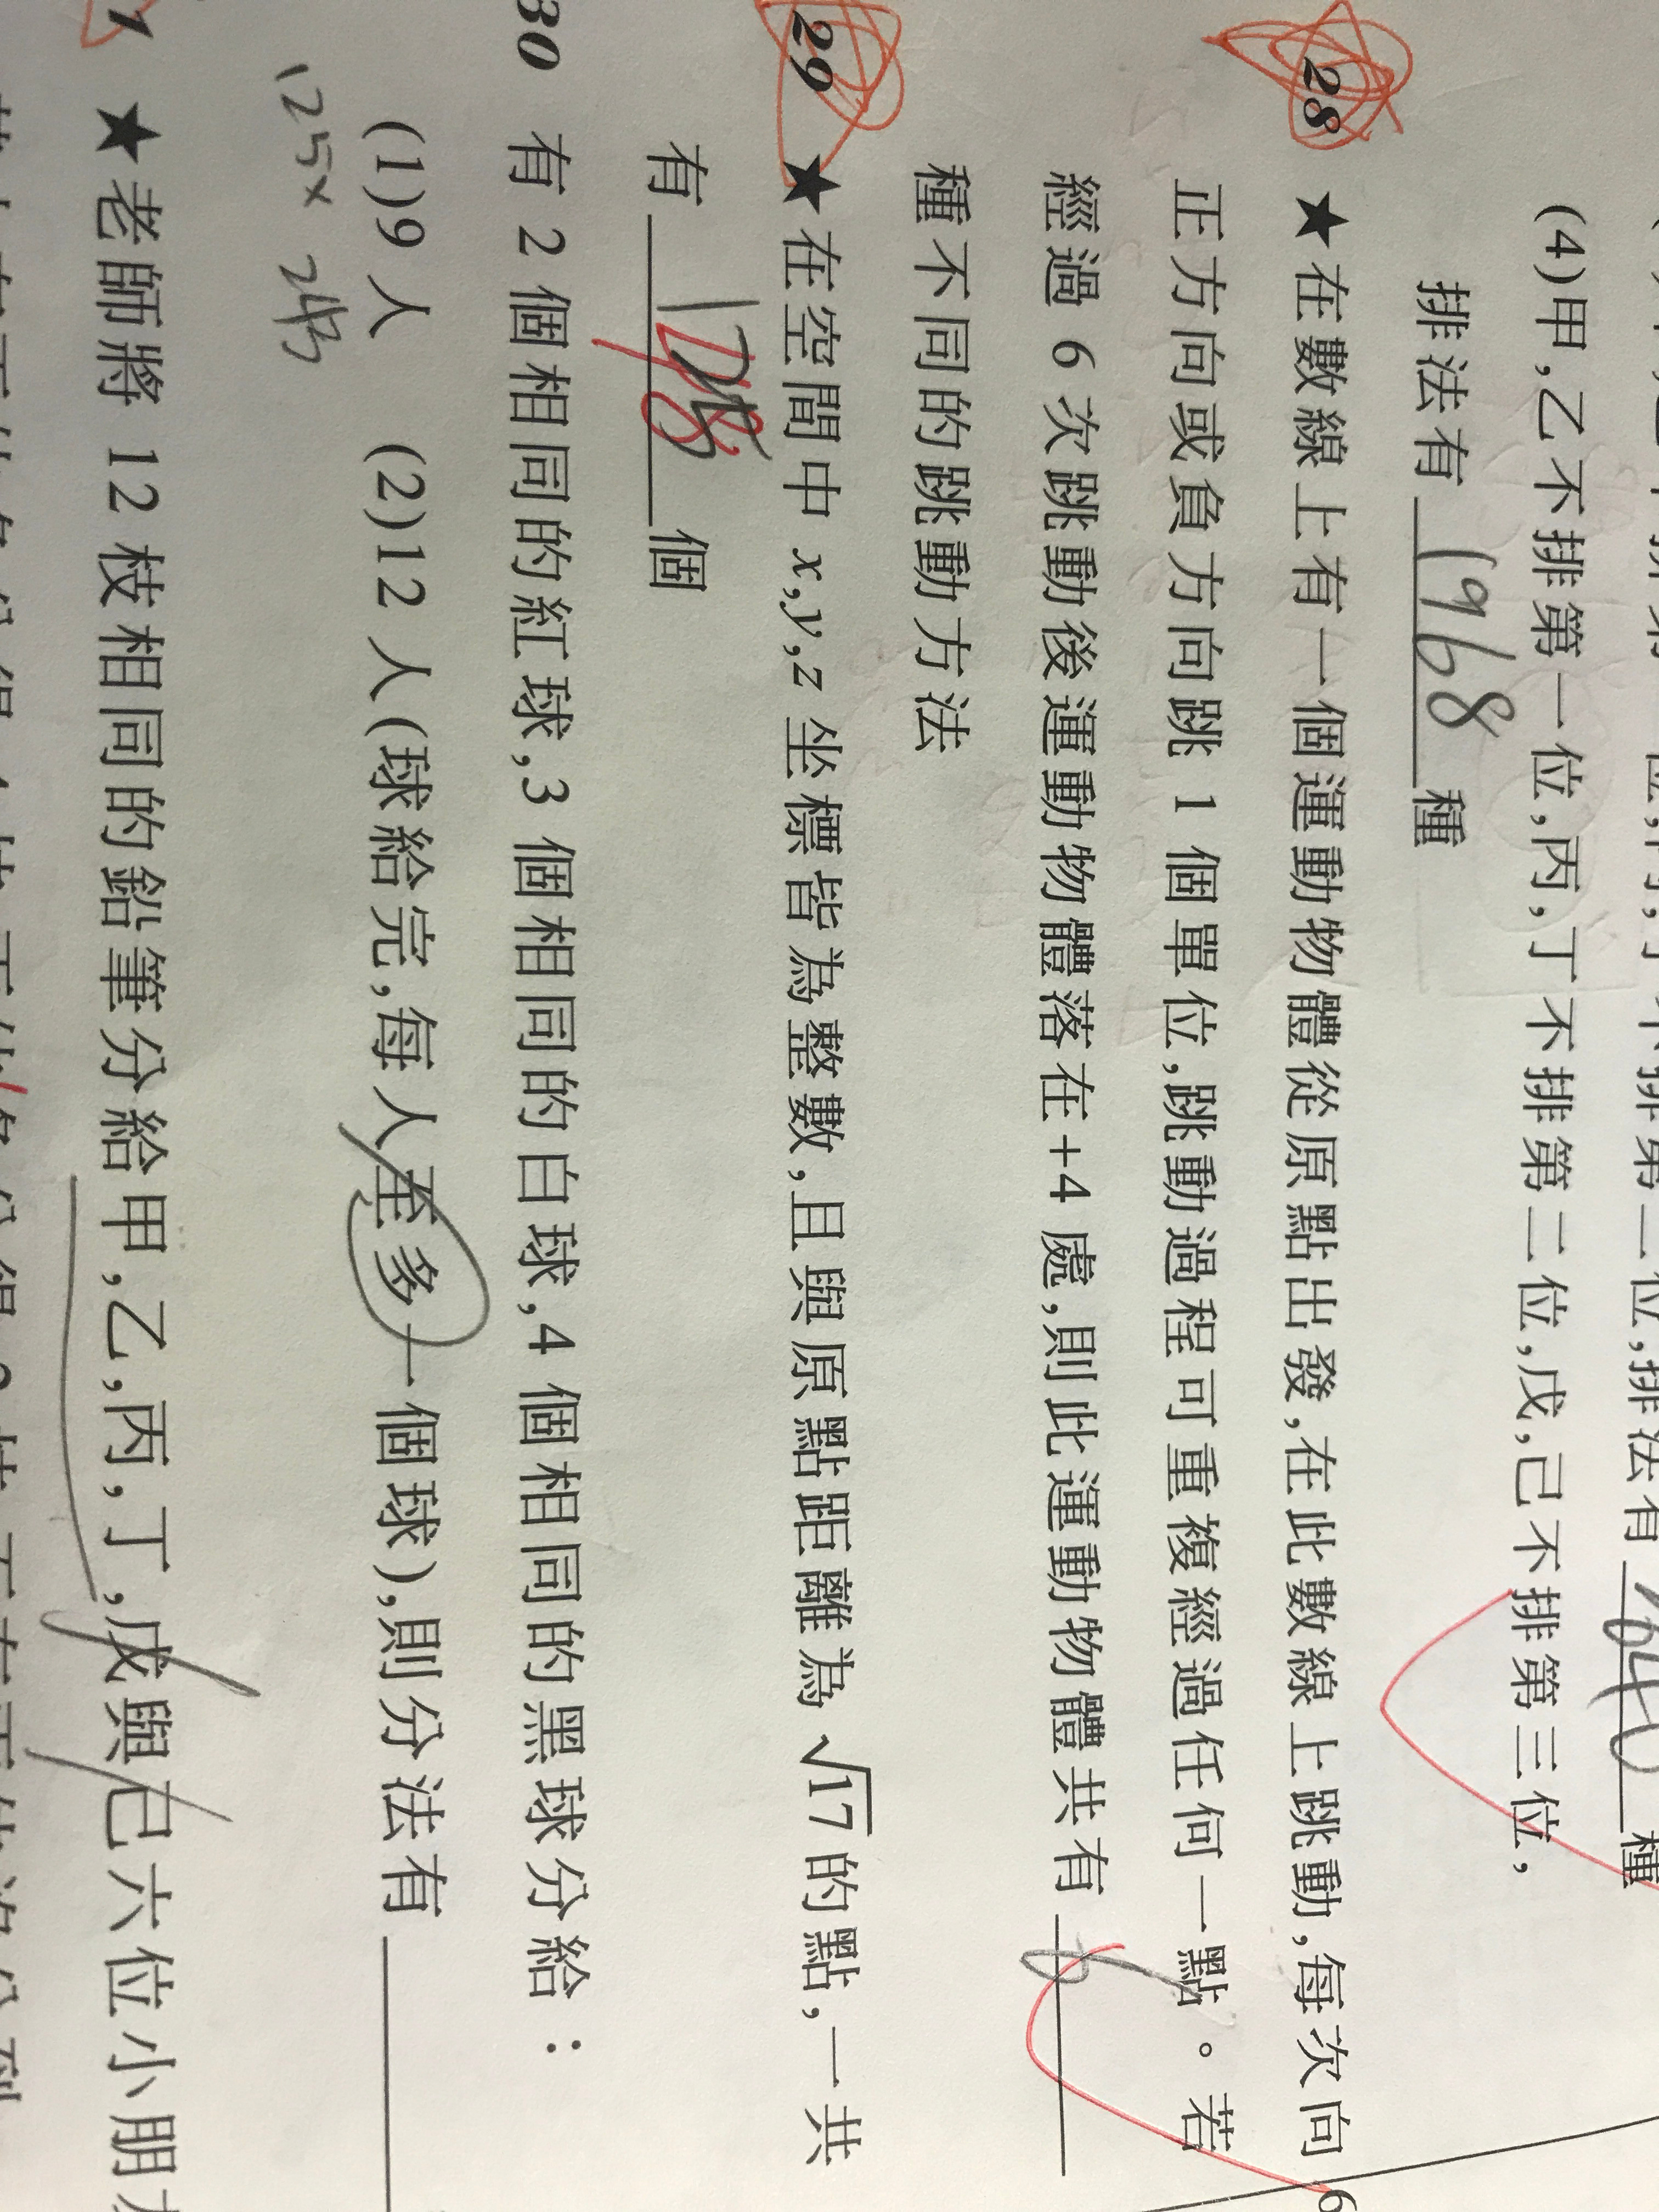 (4)甲,乙不排第一位,丙,丁不排第二位,戊,己不排第三位,
排法有 1968 種
28 ★在數線上有一個運動物體從原點出發,在此數線上跳動,每次向
正方向或負方向跳 1 個單位,跳動過程可重複經過任何一點。若
經過 6 次跳動後運動物體落在+4 處,則此運動物體共有 6
種不同的跳動方法
29 ★在空間中 x,y,z 坐標皆為整數,且與原點距離為 √17 的點,一共
有 個
30 有 2 個相同的紅球,3 個相同的白球,4 個相同的黑球分給:
(1)9 人 (2)12 人(球給完,每人至多一個球),則分法有
125×
★老師將 12 枝相同的鉛筆分給甲,乙,丙,丁,戊與己六位小朋友